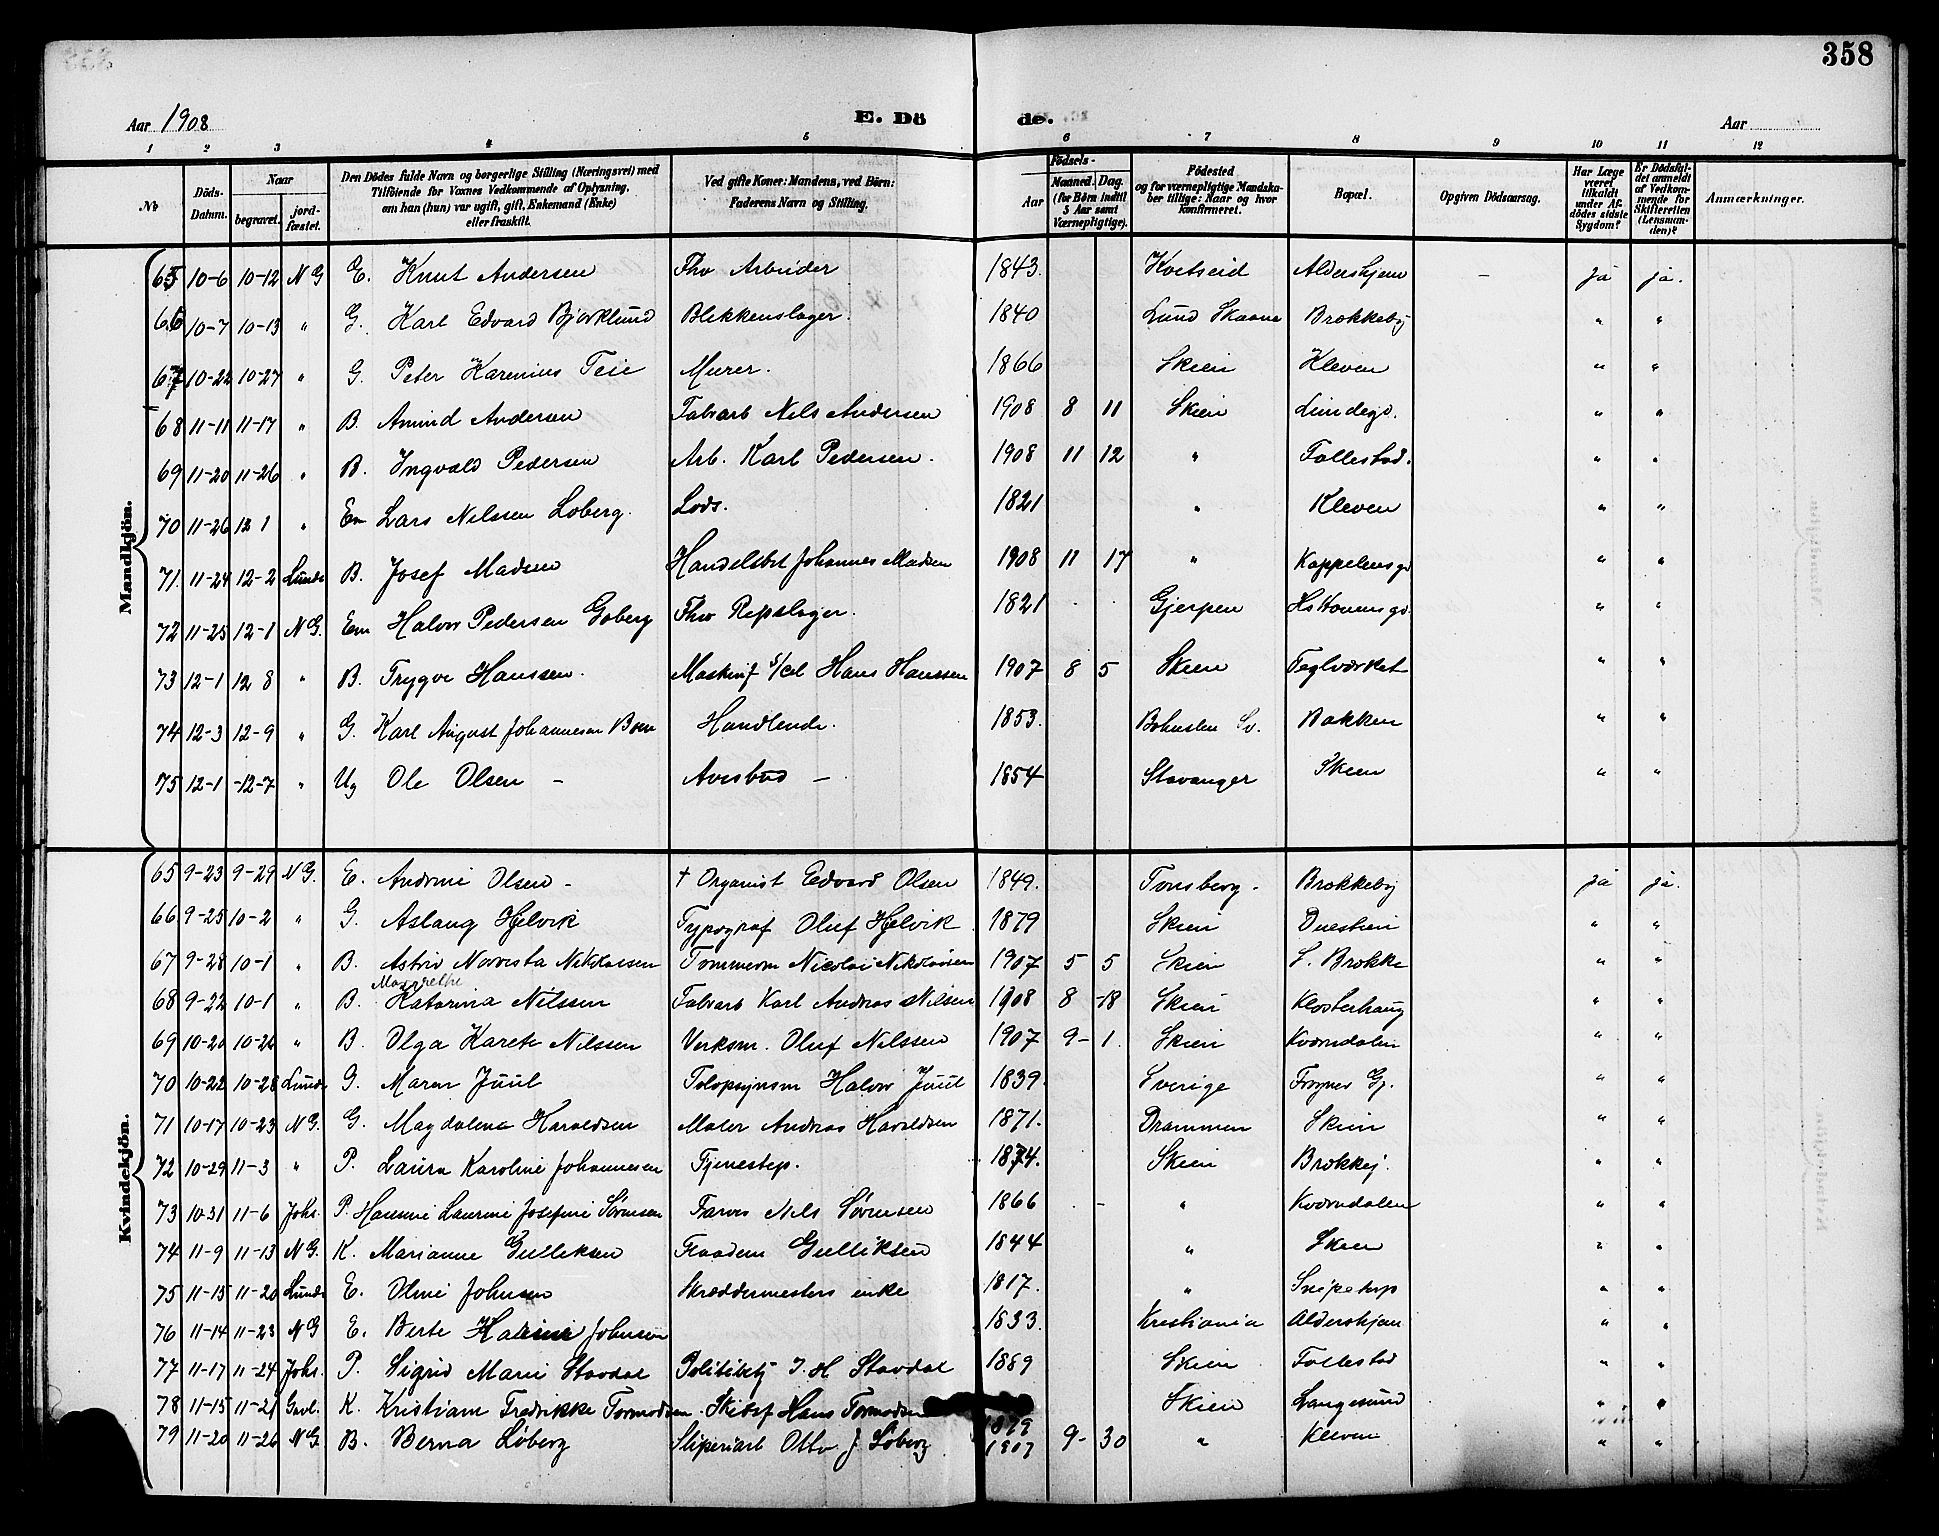 358
Aar 1908 E. Dö de. Aar
1 2 3 4 5 6 7 8 9 10 11 12
№ Döds-Datum. Naar begravet. jordfæstet. Den Dödes fulde Navn og borgerlige Stilling (Næringsvei) med Tilföiende for Voxnes Vedkommende af Oplysning, om han (hun) var ugift, gift, Enkemand (Enke) eller fraskilt. Ved gifte Koner: Mandens, ved Børn: Faderens Navn og Stilling. Födsels- Aar Maaned. Dag. (for Børn indtil 5 Aar samt Værnepligtige). Födested og for værnepligtige Mandskaber tillige: Naar og hvor konfirmeret. Bopæl. Opgiven Dödsaarsag. Har Læge været tilkaldt under Afdödes sidste Sygdom? Er Dödsfaldet anmeldt af Vedkommende for Skifteretten (Lensmanden)? Anmærkninger.
Mandkjön.
65 10-6 10-12 NG E. Knut Andersen Fhv Arbeider 1843. Kvitseid Aldershjem - ja ja.
66 10-7 10-13 " G. Karl Edvard Bjorklund Blikkenslager. 1840 Lund Skaane Brekkeby " "
67 10-22 10-27 " G. Peter Karenius Teie Murer. 1866 Skien Kleven " "
68 11-11 11-17 " B. Amind Andersen Fabarb Nils Andersen 1908 8 11 Skien Lundegd. " "
69 11-20 11-26 " B. Ingvald Pedersen Arb. Karl Pedersen. 1908 11 12 " Follestad. " "
70 11-26 12 1 " Em Lars Nilssen Loberg. Lods. 1821 " Kleven " "
71. 11-24 12-2 Lunde B. Josef Madsen Handelsbet Johannes Madsen 1908 11 17 " Kappelensgd " "
72 11-25 12-1 NG. Em Halvor Pedersen Goberg Fhv Repslager. 1821 Gjerpen " "
73 12-1 12 8 " B. Trygve Hanssen. Maskinf Hans Hanssen 1907 8 5 Skien Teglværket " "
74 12-3 12-9 " G. Karl August Johannesen Handlende. 1853. Bohuslen Sv. Bakken " "
75 12-1 -12-7 " Ug Ole Olsen - - 1854 Stavanger Skien " "
Kvindekjön.
65 9-23 9-29 NG. E. Andrine Olsen - † Organist Edvard Olsen 1849. Tonsberg. Brekkeby ja ja.
66 9-25 10-2 " G. Aslaug Hjelvik Typograf Oluf Hjelvik 1879 Skien Duestien " "
67 9-28 10-1 " B. Astrid Nikolaisen Tommerm Nicolai Nikolaisen 1907 5 5 Skien S. Brekke " "
Margrethe
68 9-22 10-1 " B. Katarina Nilssen Fabarb Karl Andreas Nilsen 1908 8 -18 Skien Klosterhaug " "
69 10-20 10-24 " B. Olga Karete Nilssen Verksm. Oluf Nilssen 1907 9- 1. Skien Kverndalen " "
70 10-22 10-28 Lunde G. Maren Juul Halvor Juul 1839. Sverige Frognes Gj. " "
71 10-17 10-23 NG. G. Magdalena Haraldsen Maler Andreas Haraldsen 1871. Drammen Skien " "
72 10-29 11-3 " P. Laura Karoline Johannesen Tjenestep. 1874. Skien Brekkej. " "
73 10-31 11-6 Johs. P. Hansine Laurine Josefine Sørensen Farver Nils Sørensen 1866 - " Kverndalen " "
74 11-9 11-13 NG. K. Marianne Gulliksen Gulliksen 1844 " Skien " "
75 11-15 11-20 Lunde E. Oline Johnsen Skræddermesters enke 1817. " Snipetorp " "
76 11-14 11-23 NG E. Berte Johnsen 1833. Kristiania Aldershjem " "
77 11-17 11-24 Johs. P. Sigrid Marie Stavdal Politibtj. J. H Stavdal 1889 Skien Follestad " "
78 11-15 11-21 Gavl. K. Kristiane Fredrikke Tormodsen Skibsf Hans Tormodsen 1879 Skien Langesund " "
79 11-20 11-26 NG B. Berna Loberg Sliperiarb Otto J Loberg 1907 9- 30 " Kleven " "